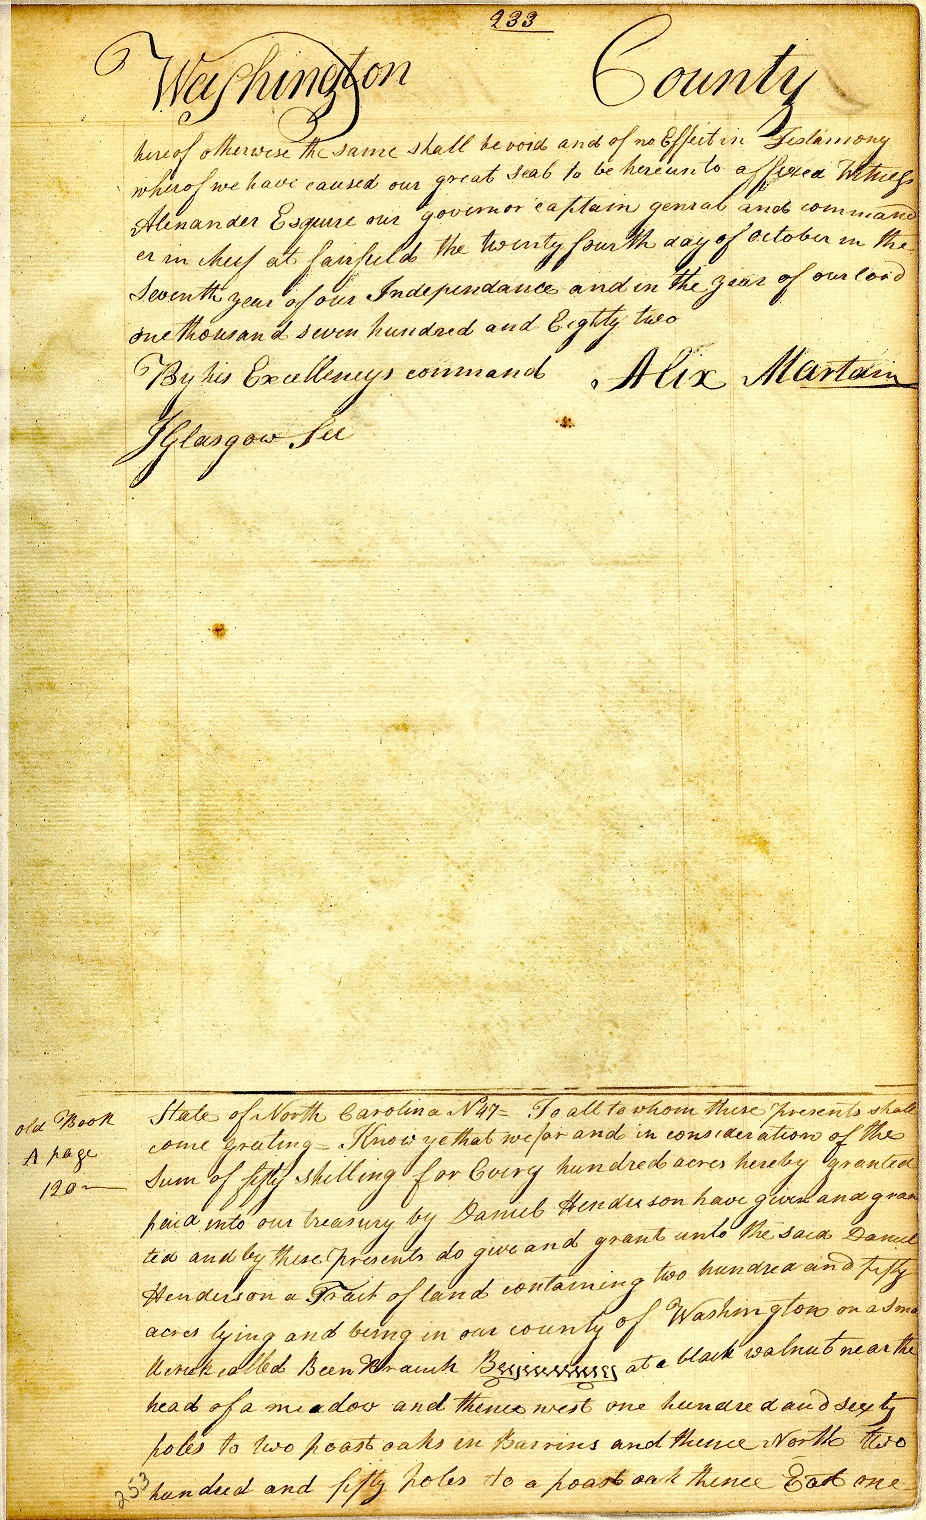 233
Washington County
hereof otherwise the same shall be void and of no Effect in Testamony
wherof we have caused our great seal to be hereunto affixed Witness
Alexander Esquire our governor captain genral and command
er in cheif at fairfield the twenty fourth day of October in the
Seventh year of our Independance and in the year of our lord
one thousand seven hundred and Eighty two
By his Excellencys command Alix Martain
J Glasgow Sec
old Book
A page
120
State of North Carolina N 47 = To all to whom these presents shall
come greating = Know ye that we for and in consideration of the
Sum of fifty shilling for Every hundred acres hereby granted
paid into our treasury by Daniel Henderson have given and gran
ted and by these presents do give and grant unto the said Daniel
Henderson a Tract of land containing two hundred and fifty
acres lying and being in our county of Washington on a Sma
ll creek called Been Branch Beginning at a black walnut near the
head of a meadow and thence west one hundred and sixty
poles to two poast oaks in Barrins and thence North two
hundred and fifty poles to a poast oak thence East one
253